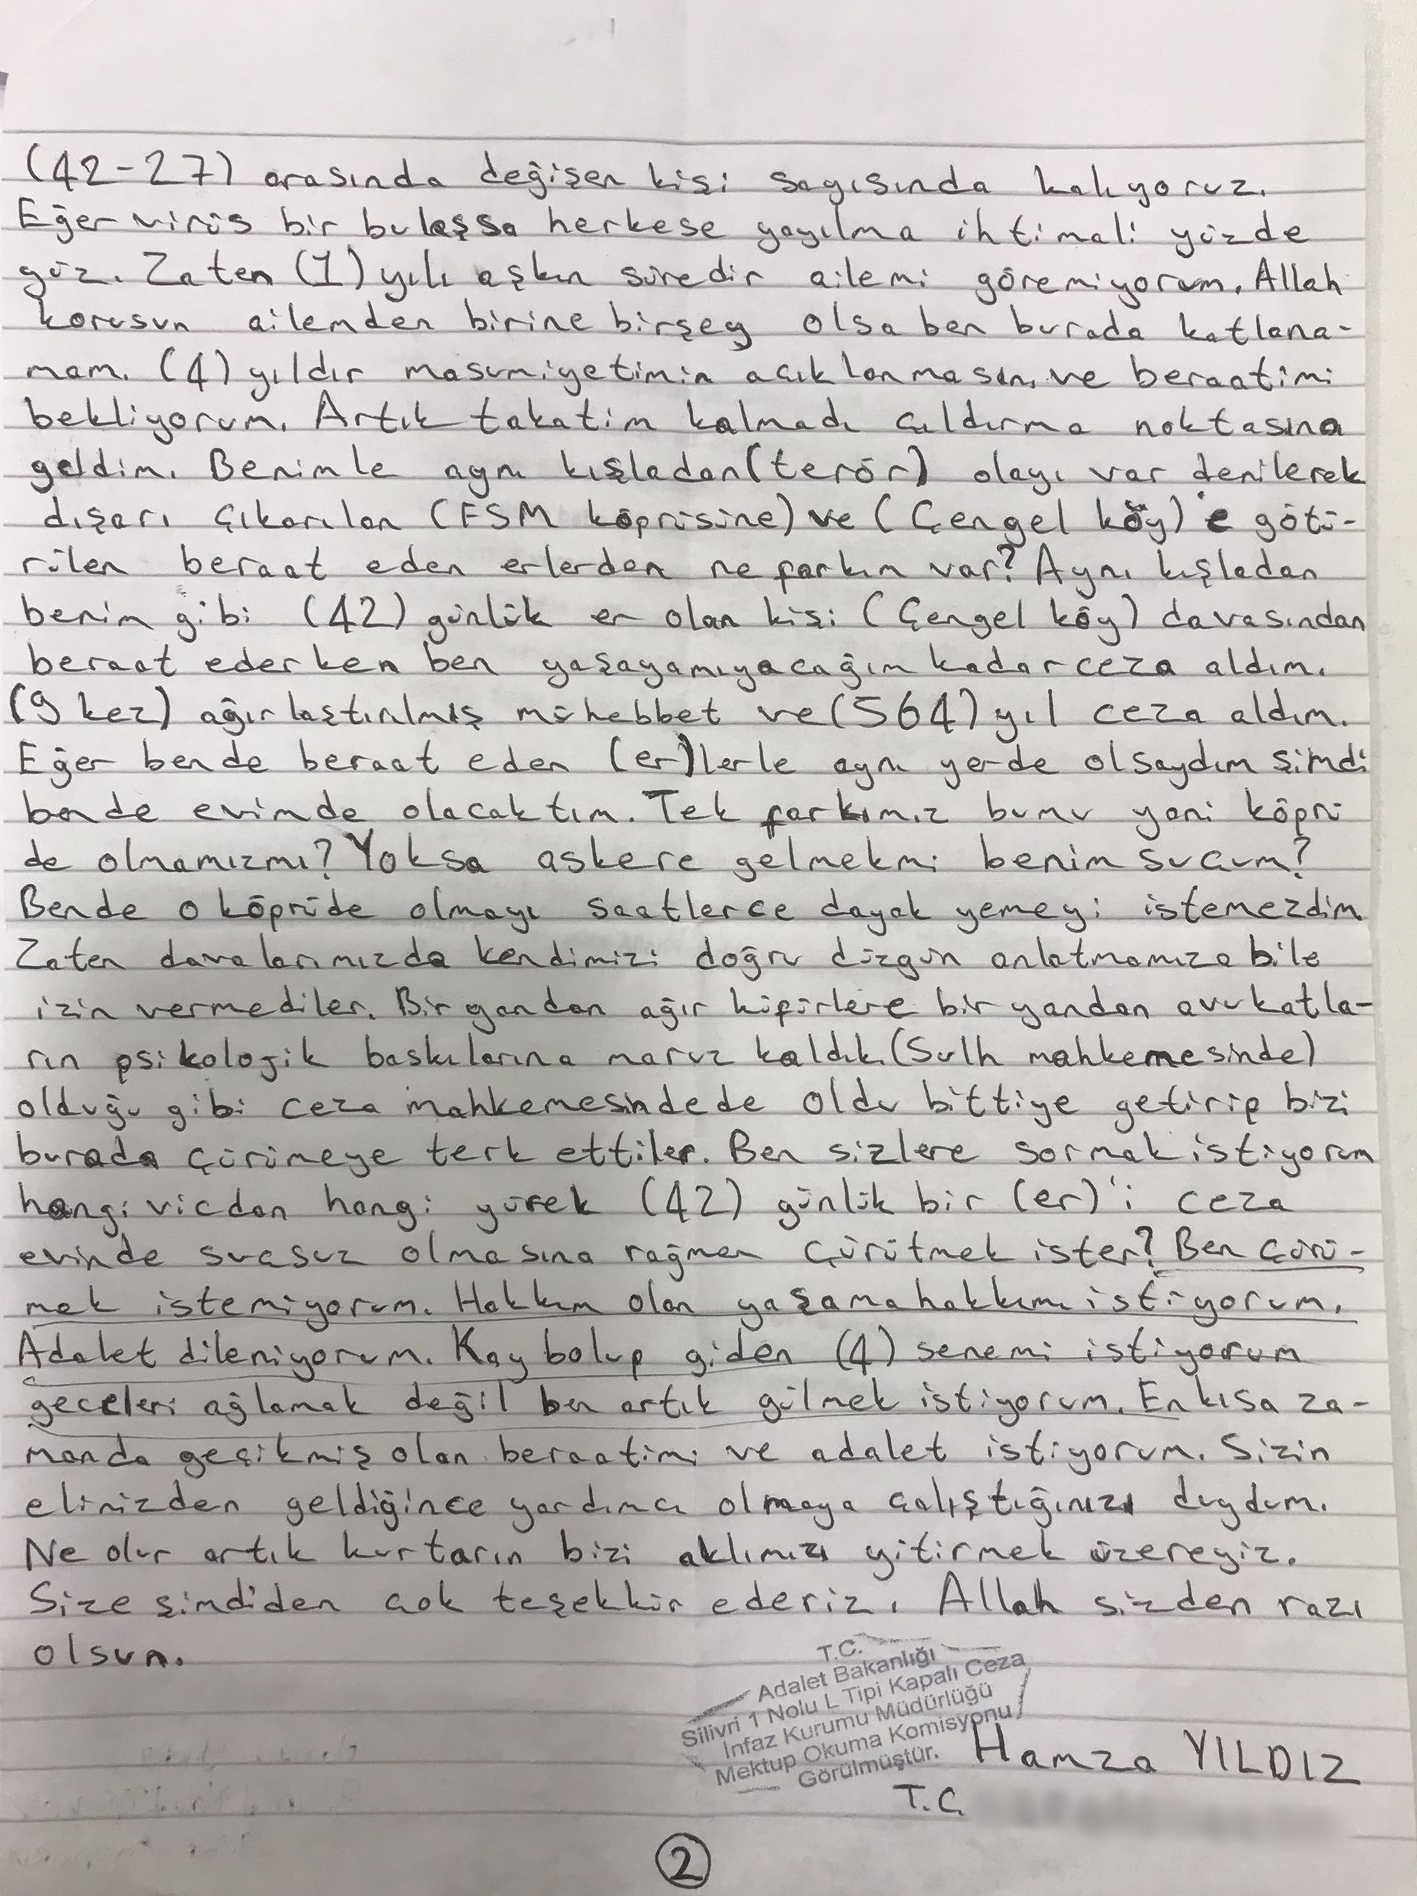 (42-27) arasında değişen kişi sayısında kalıyoruz.
Eğer virüs bir bulaşsa herkese yayılma ihtimali yüzde
yüz. Zaten (1) yılı aşkın süredir ailemi göremiyorum. Allah
korusun ailemden birine birşey olsa ben burada katlana-
mam. (4) yıldır masumiyetimin açıklanmasını ve beraatimi
bekliyorum. Artık takatim kalmadı çıldırma noktasına
geldim. Benimle aynı kışladan (terör) olayı var denilerek
dışarı çıkarılan (FSM köprüsüne) ve (Çengel köy)'e götü-
rülen beraat eden erlerden ne farkım var? Aynı kışladan
benim gibi (42) günlük er olan kişi (Çengel köy) davasından
beraat ederken ben yaşayamıyacağım kadar ceza aldım.
(9 kez) ağırlaştırılmış mühebbet ve (564) yıl ceza aldım.
Eğer bende beraat eden (er)lerle aynı yerde olsaydım şimdi
bende evimde olacaktım. Tek farkımız bunu yani köprü
de olmamızmı? Yoksa askere gelmekmi benim suçum?
Bende o köprüde olmayı saatlerce dayak yemeyi istemezdim
Zaten davalarımızda kendimizi doğru düzgün anlatmamıza bile
izin vermediler. Bir yandan ağır küfürlere bir yandan avukatla-
rın psikolojik baskılarına maruz kaldık. (Sulh mahkemesinde)
olduğu gibi ceza mahkemesindede oldu bittiye getirip bizi
burada çürümeye terk ettiler. Ben sizlere sormak istiyorum
hangi vicdan hangi yürek (42) günlük bir (er)'i ceza
evinde suçsuz olmasına rağmen çürütmek ister? Ben çürü-
mek istemiyorum. Hakkım olan yaşama hakkımı istiyorum.
Adalet dileniyorum. Kaybolup giden (4) senemi istiyorum
geceleri ağlamak değil ben artık gülmek istiyorum. En kısa za-
manda geçikmiş olan beraatimi ve adalet istiyorum. Sizin
elinizden geldiğince yardımcı olmaya çalıştığınızı duydum.
Ne olur artık kurtarın bizi aklımızı yitirmek üzereyiz.
Size şimdiden çok teşekkür ederiz. Allah sizden razı
olsun.
T.C.
Adalet Bakanlığı
Silivri 1 Nolu L Tipi Kapalı Ceza
İnfaz Kurumu Müdürlüğü
Mektup Okuma Komisyonu
Görülmüştür.
Hamza YILDIZ
T.C.
2